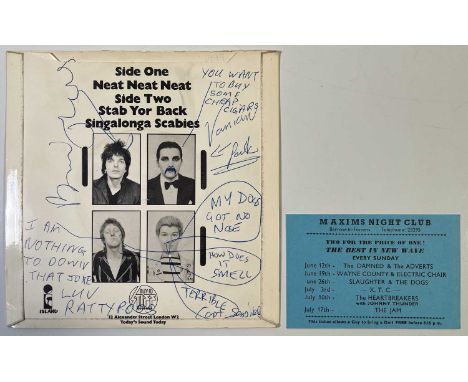 Side One
Neat Neat Neat
Side Two
Stab Yor Back
Singalonga Scabies
YOU WANT
TO BUY
SOME
CHEAP
CIGARS
Vanian
MY DOGS
GOT NO
NOSE
HOW DOES IT
SMELL
TERRIBLE
I AM
NOTHING
TO DOWN
THAT JOKE
LUV
RATTY
ISLAND
32 Alexander Street London W2
Today's Sound Today
MAXIMS NIGHT CLUB
Barrow-in-Furness Telephone
TWO FOR THE PRICE OF ONE!
THE BEST IN NEW WAVE
EVERY SUNDAY
June 12th- The DAMNED & The ADVERTS
June 19th- WAYNE COUNTY & ELECTRIC CHAIR
June 26th- SLAUGHTER & THE DOGS
July 3rd- X. T. C.
July 10th- The HEARTBREAKERS
with JOHNNY THUNDER
July 17th- THE JAM
This ticket allows a Guy to bring a Girl FREE before 9.15 p.m.